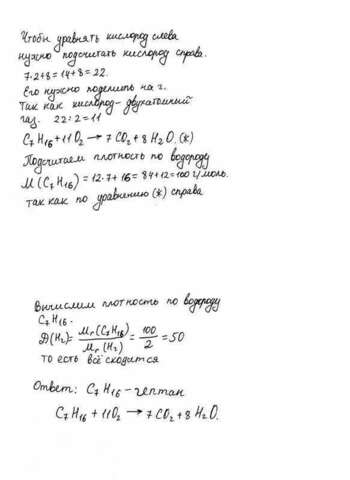 Чтобы уравнять кислород слева
нужно подсчитать кислород справа.
7·2+8=14+8=22.
Его нужно поделить на 2.
Так как кислород- двухатомный
газ. 22:2=11
C₇H₁₆+11O₂ → 7CO₂+8H₂O.(*)
Подсчитаем плотность по водороду
M(C₇H₁₆)=12·7+16=84+12=100 г/моль.
так как по уравнению (*) справа
Вычислим плотность по водороду
C₇H₁₆.
D(H₂)=Mr(C₇H₁₆)/Mr(H₂)=100/2=50
то есть всё сходится
Ответ: C₇H₁₆-гептан
C₇H₁₆+11O₂ → 7CO₂+8H₂O.